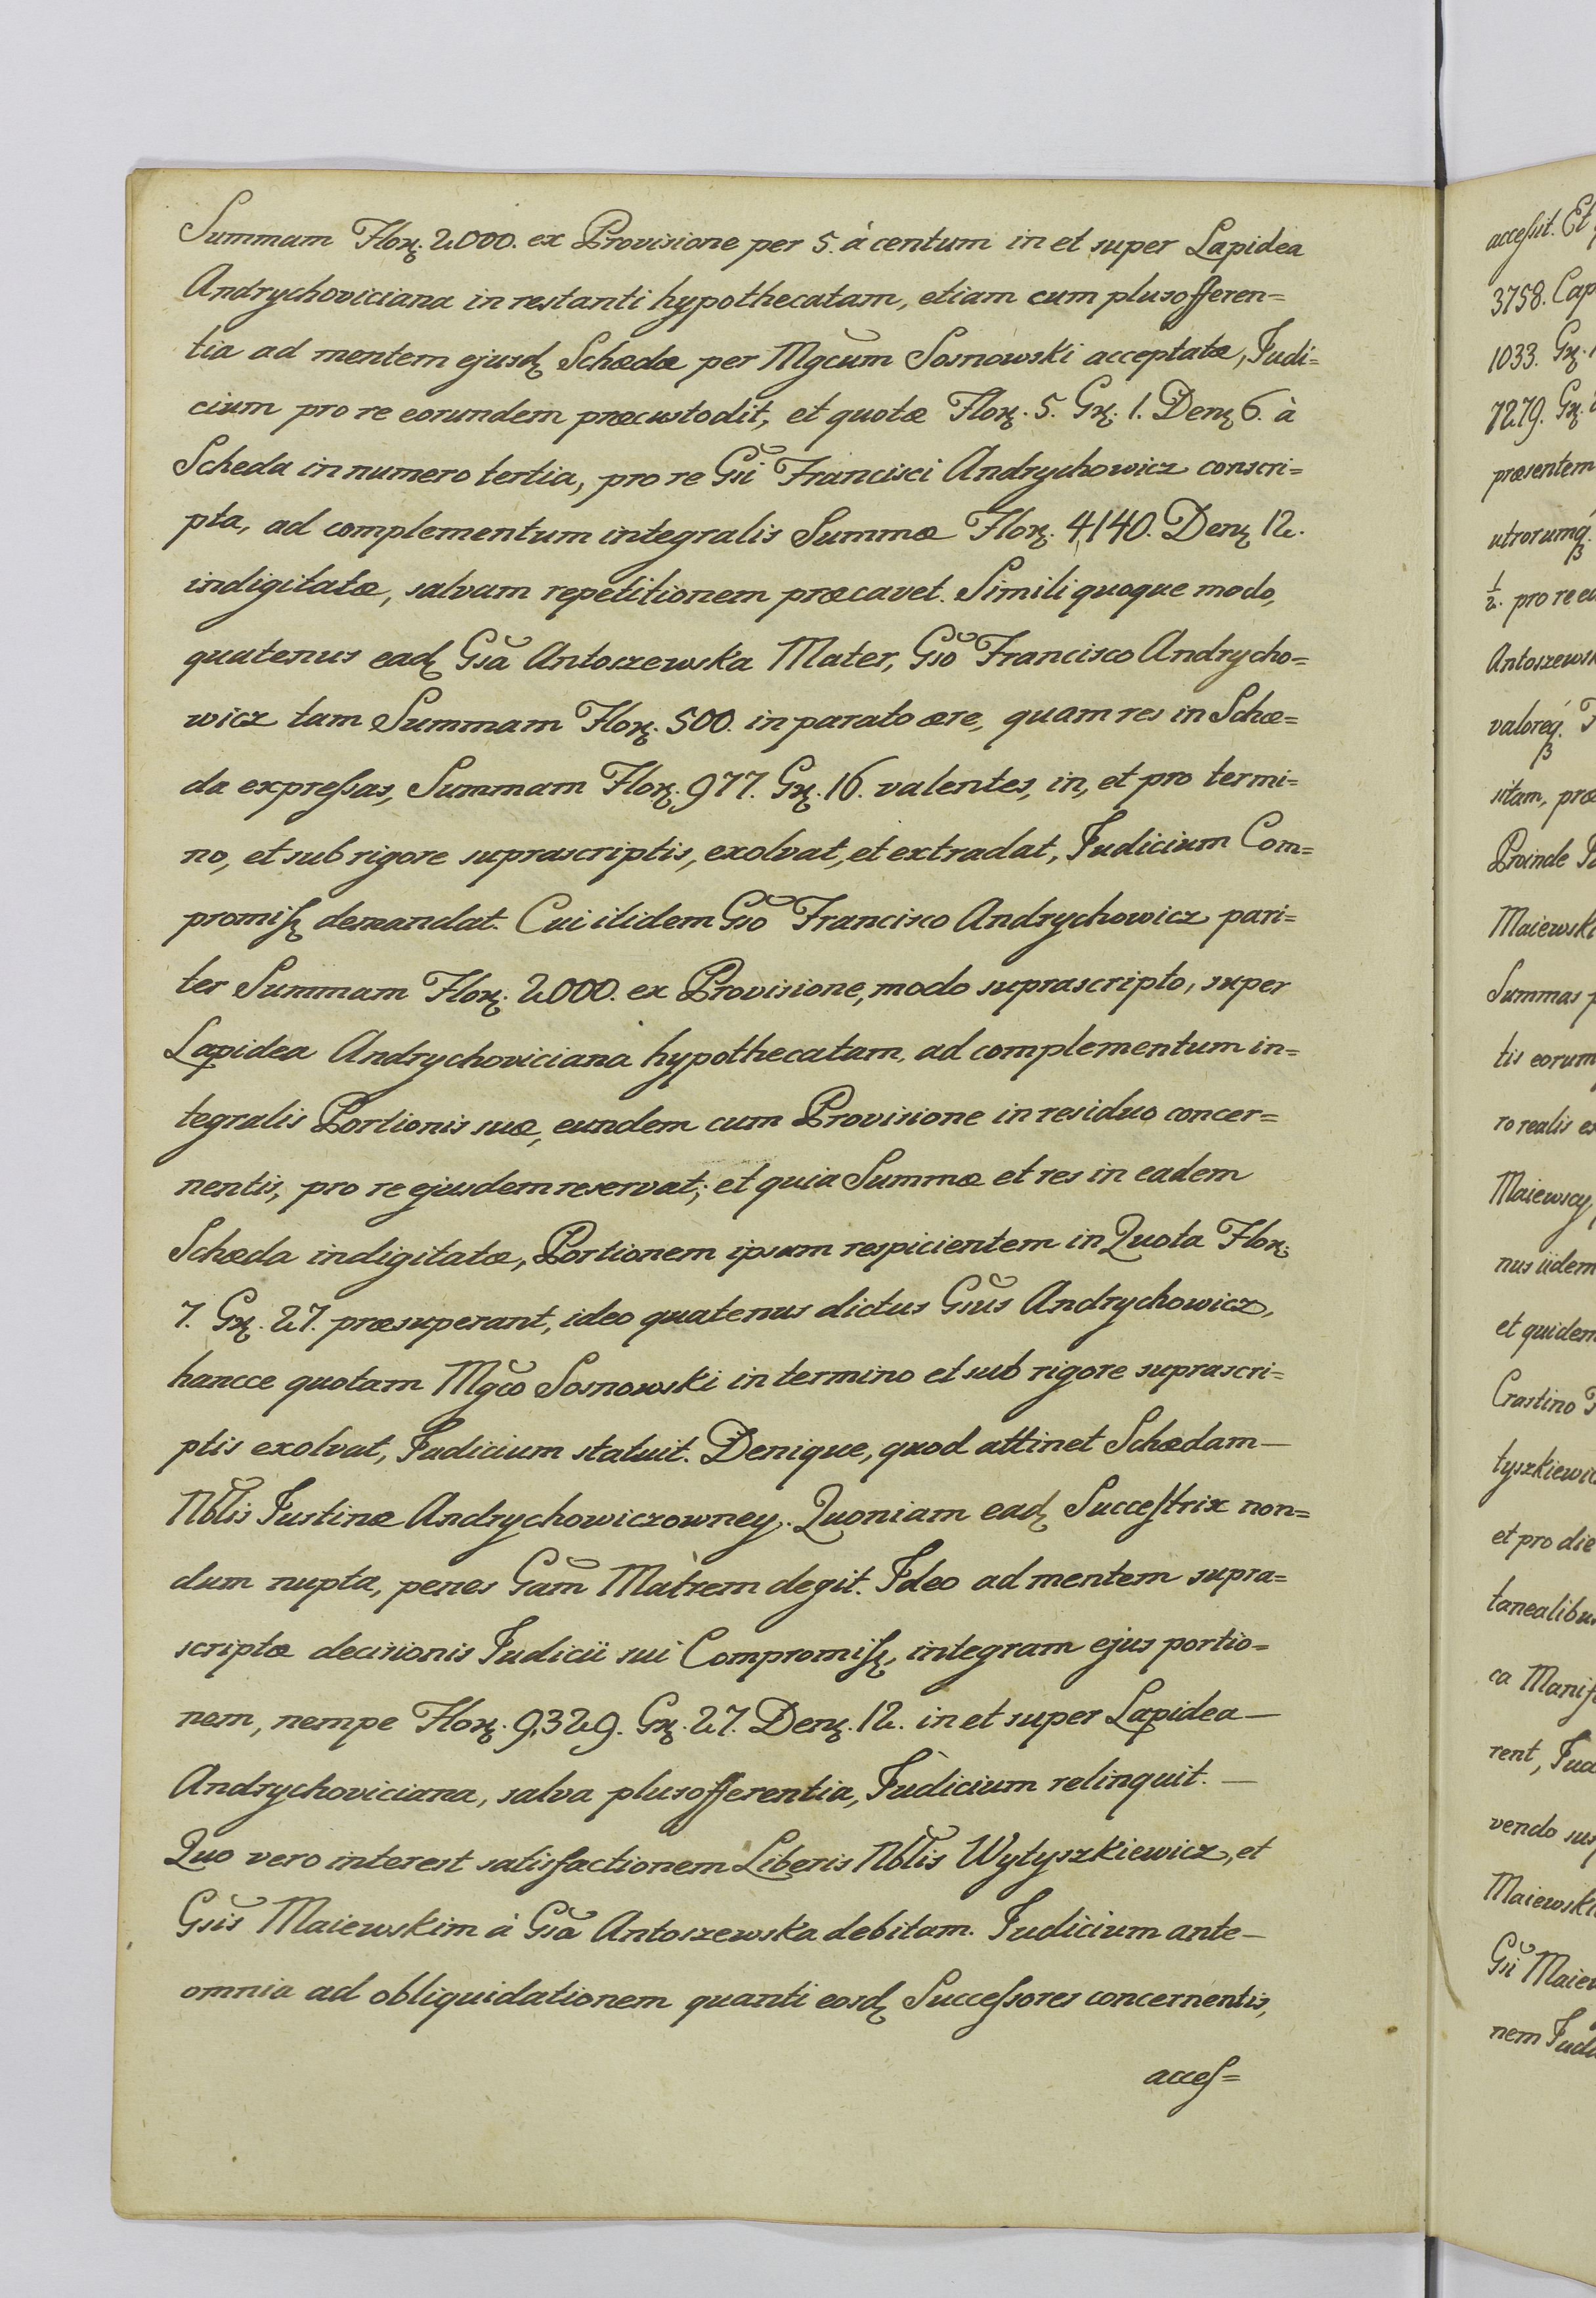 Summam Florꝝ. 2000. ex Provisione per 5. à centum in et super Lapidea
Andrychoviciana in restanti hypothecatam, etiam cum plusofferen=
tia ad mentem ejusdꝫ Schædæ per Mgc̃um Sosnowski acceptatæ, Judi=
cium pro re eorundem præcustodit, et quotæ Florꝝ. 5. Grꝝ. 1. Denꝝ 6. à
Scheda in numero tertia, pro re Gsĩ Francisci Andrychowicz conscri=
pta, ad complementum integralis Summæ Florꝝ. 4,140. Denꝝ 12.
indigitatæ, salvam repetitionem præcavet. Simili quoque modo,
quatenus eadꝫ Gsã Antoszewska Mater, Gsõ Francisco Andrycho=
wicz tam Summam Florꝝ. 500. in parato ære, quam res in Schæ=
da expreſsas, Summam Florꝝ. 977. Grꝝ. 16. valentes, in, et pro termi=
no, et sub rigore suprascriptis, exolvat, et extradat, Judicium Com=
promiſsꝫ demandat. Cui itidem Gsõ Francisco Andrychowicz pari=
ter Summam Florꝝ. 2000. ex Provisione, modo suprascripto, super
Lapidea Andrychoviciana hypothecatam, ad complementum in=
tegralis Portionis suæ, eundem cum Provisione in residuo concer=
nentis, pro re ejusdem reservat; et quia Summæ et res in eadem
Schæda indigitatæ, Portionem ipsum respicientem in Quota Florꝝ.
7. Grꝝ. 27. præsuperant, ideo quatenus dictus Gsũs Andrychowicz,
hancce quotam Mgc̃o Sosnowski in termino et sub rigore suprascri=
ptis exolvat, Judicium statuit. Denique, quod attinet Schædam —
Nbl̃is Justinæ Andrychowiczowney. Quoniam eadꝫ Succeſstrix non=
dum nupta, penes Gsam̃ Matrem degit. Ideo ad mentem supra=
scriptæ decisionis Judicii sui Compromiſsꝫ, integram ejus portio=
nem, nempe Florꝝ. 9,329. Grꝝ. 27. Denꝝ. 12. in et super Lapidea —
Andrychoviciana, salva plusofferentia, Judicium relinquit. —
Quo vero interest satisfactionem Liberis Nbl̃is Wytyszkiewicz, et
Gsĩs Maiewskim à Gsã Antoszewska debitam. Judicium ante —
omnia ad obliquidationem quanti eosdꝫ Succeſsores concernentis,
acceſ=
acceſsit. Et
3758. Cap
1033. Grꝝ.
7279. Grꝝ.
præsentem
utrorumqꝫ.
½. pro re
Antoszewsk
valoreqꝫ.
sitam, præ
Proinde
Maiewski
Summas
tis eorum
ro realis
Maiewscy
nus iidem
et quidem
Crastino
tyszkiewic
et pro die
tanealibus
ca Manif
rent, Jud
vendo
Maiewski
Gsĩ Maiew
nem Judi